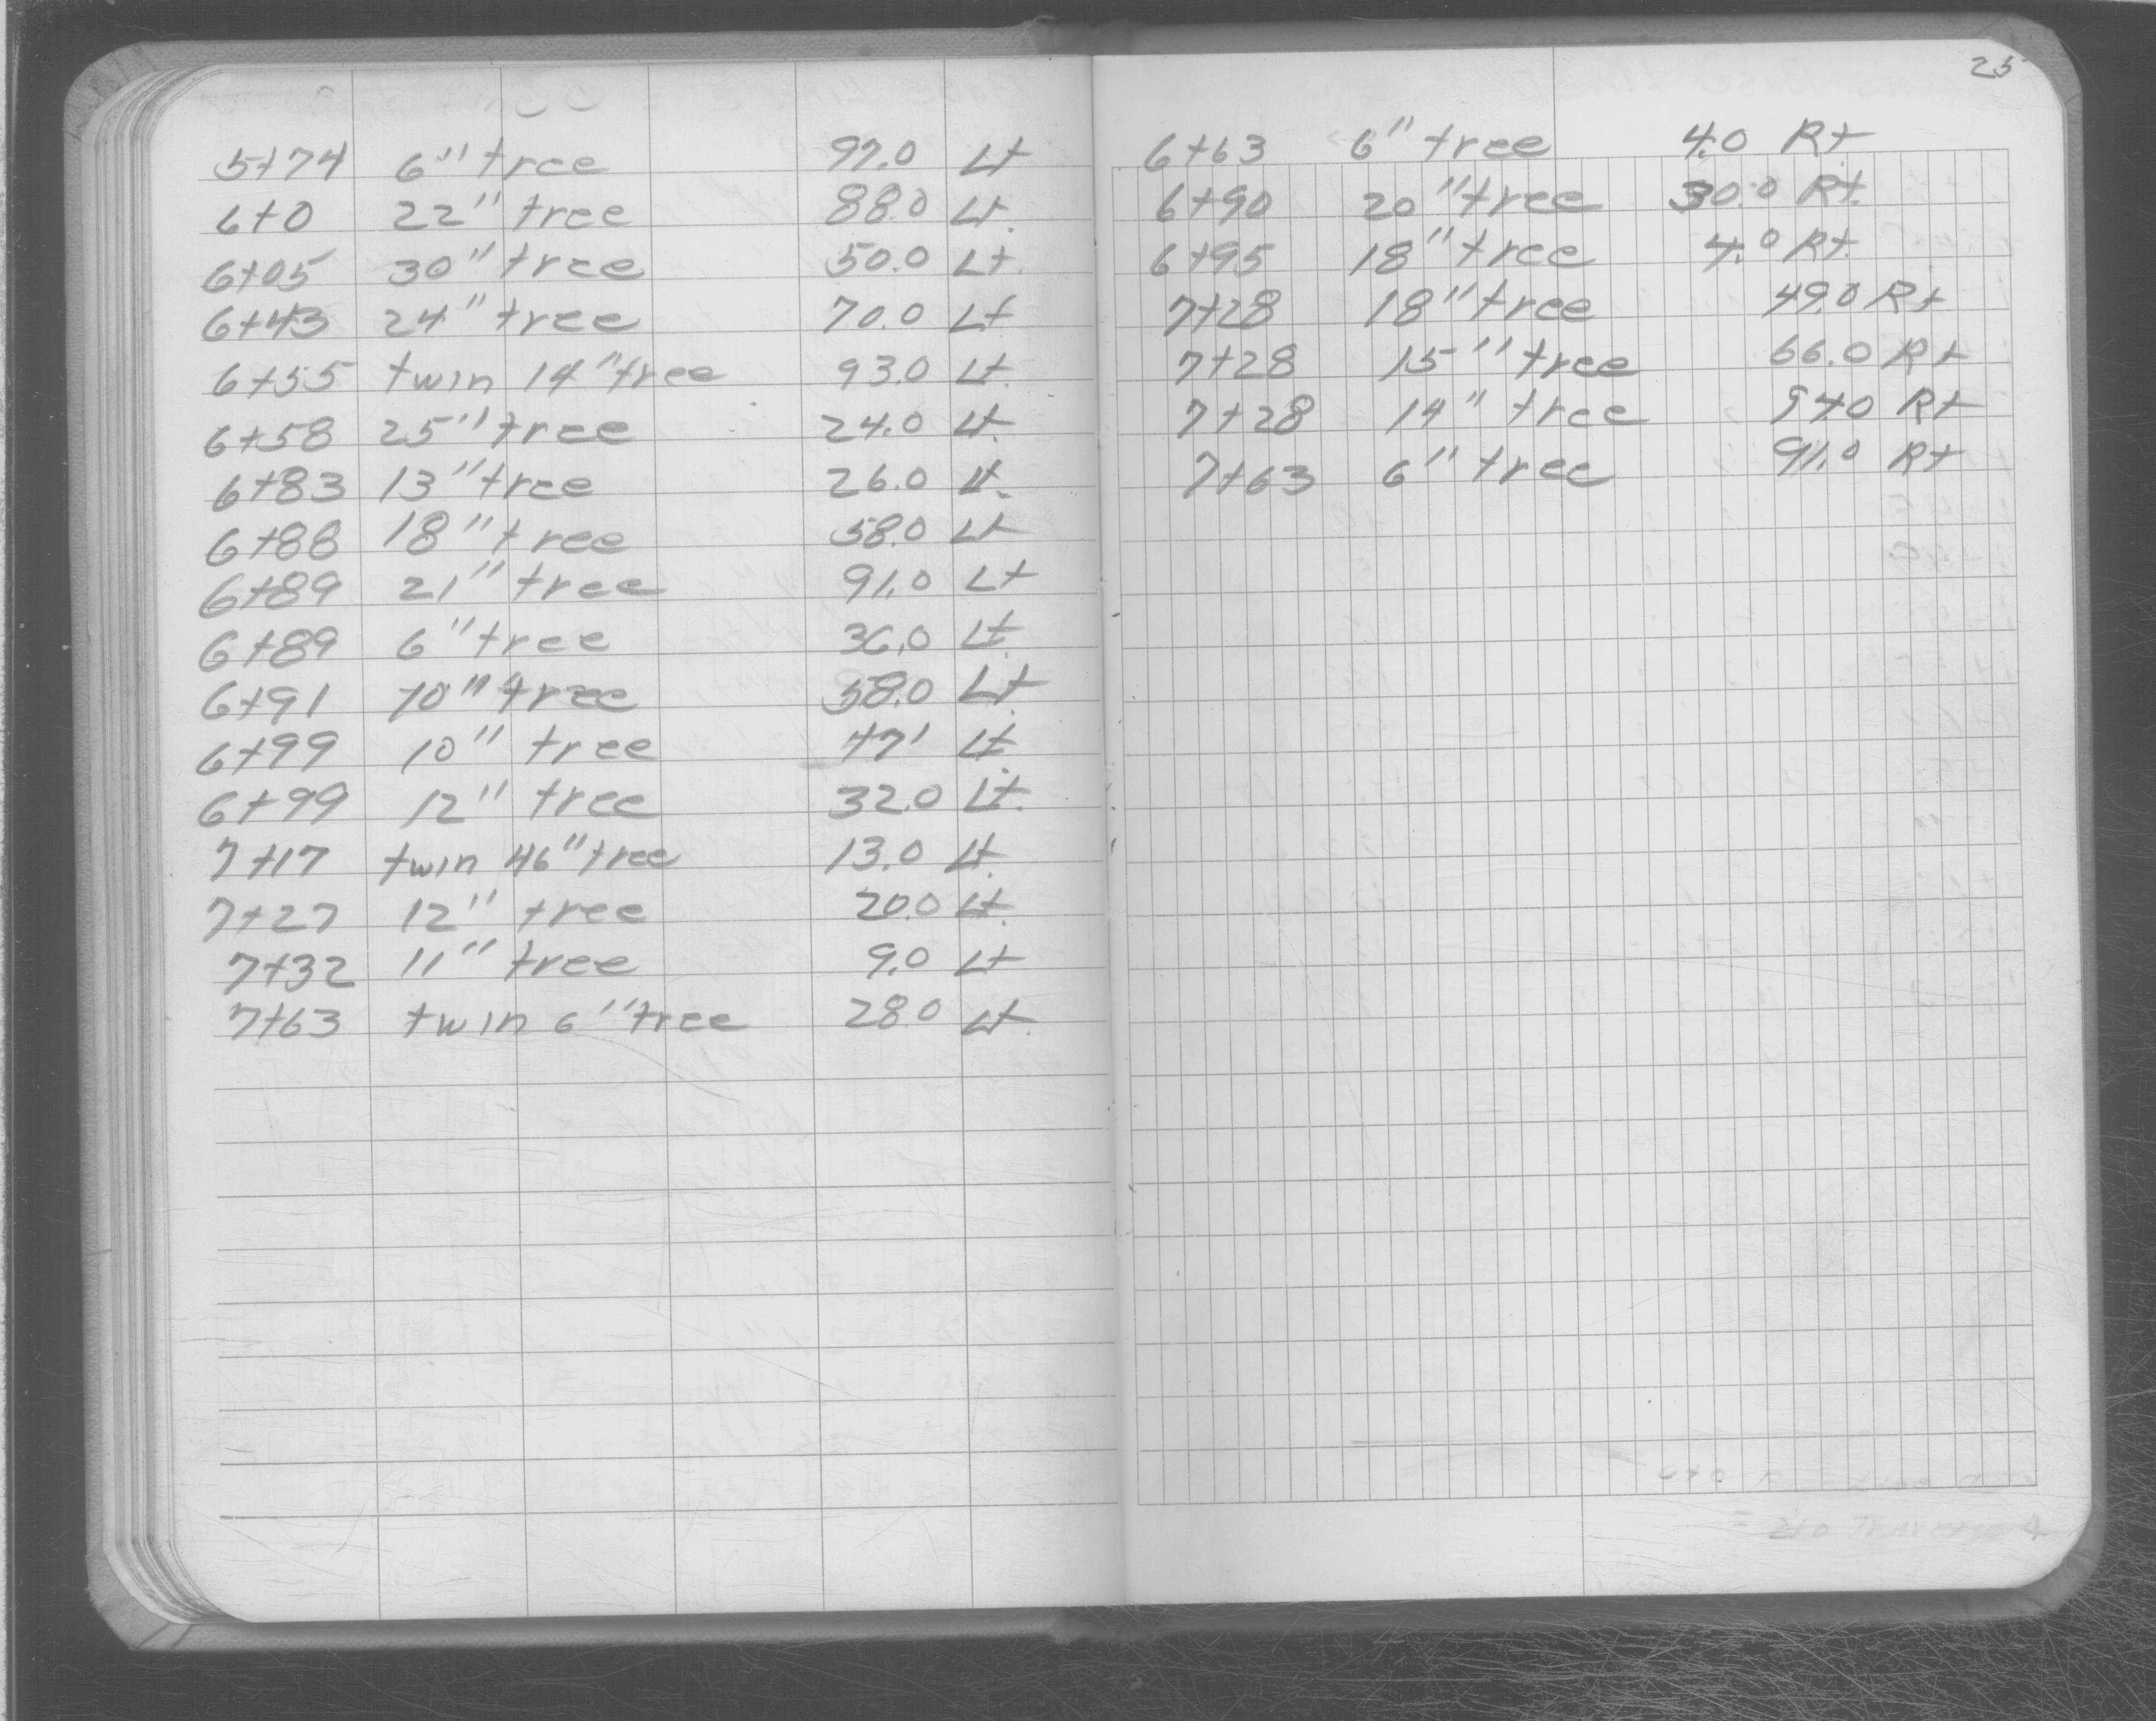 5+74 6" tree 97.0 Lt
6+0 22" tree 88.0 Lt.
6+05 30" tree 50.0 Lt.
6+43 24" tree 70.0 Lt
6+55 twin 14" tree 93.0 Lt.
6+58 25" tree 24.0 Lt.
6+83 13" tree 26.0 Lt.
6+88 18" tree 58.0 Lt
6+89 21" tree 91.0 Lt
6+89 6" tree 36.0 Lt.
6+91 10" tree 58.0 Lt.
6+99 10" tree 47' Lt.
6+99 12" tree 32.0 Lt.
7+17 twin 46" tree 13.0 Lt.
7+27 12" tree 20.0 Lt.
7+32 11" tree 9.0 Lt
7+63 twin 6" tree 28.0 Lt.
25
6+63 6" tree 4.0 Rt.
6+90 20" tree 30.0 Rt.
6+95 18" tree 4.0 Rt.
7+28 18" tree 49.0 Rt
7+28 15" tree 66.0 Rt
7+28 14" tree 94.0 Rt
7+63 6" tree 91.0 Rt